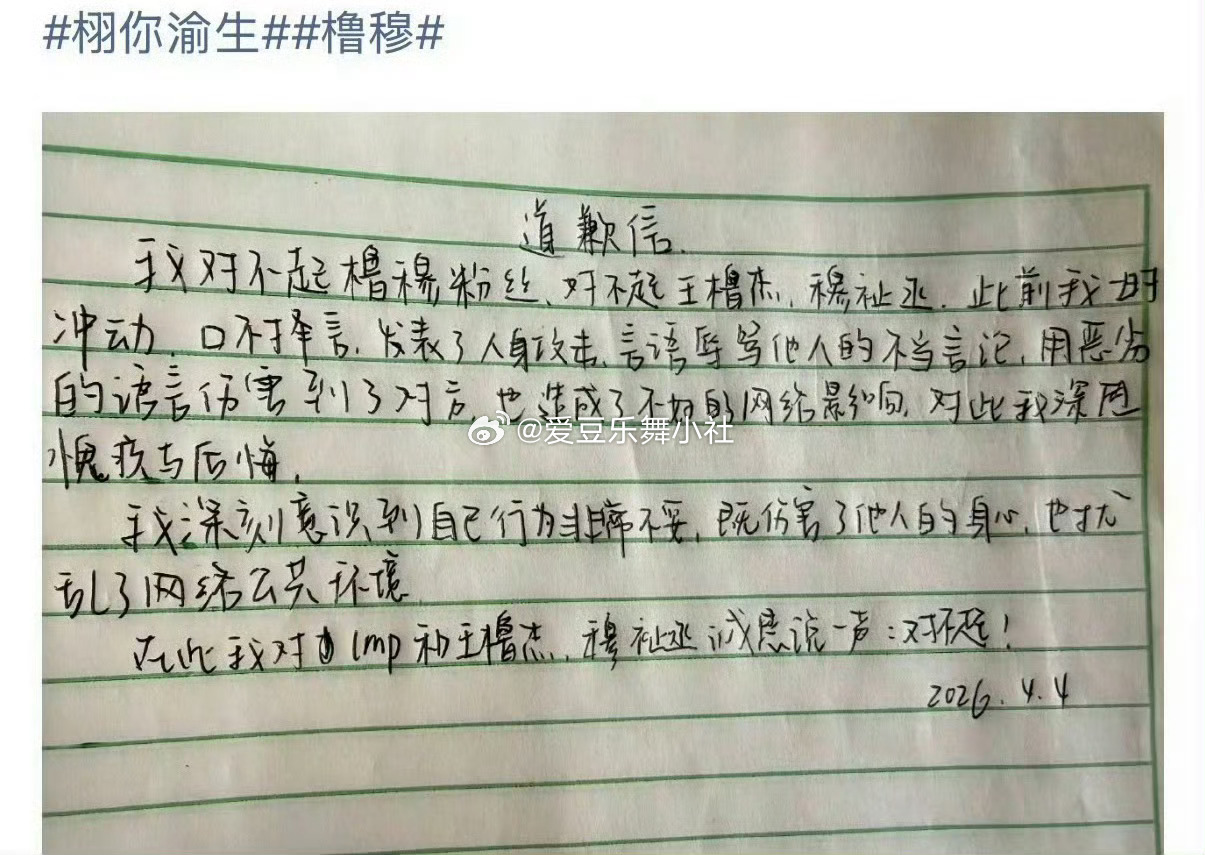 #栩你渝生##橹穆#
道歉信.
我对不起橹穆粉丝、对不起王橹杰、穆祉丞. 此前我一时
冲动、口不择言, 发表了人身攻击、言语辱骂他人的不当言论, 用恶劣
的语言伤害到了对方, 也造成了不好的网络影响, 对此我深感
愧疚与后悔.
@爱豆乐舞小社
我深刻意识到自己行为非常不妥, 既伤害了他人的身心, 也扰
乱了网络公共环境.
在此我对 lmp 和王橹杰、穆祉丞诚恳说一声:对不起!
2026.4.4